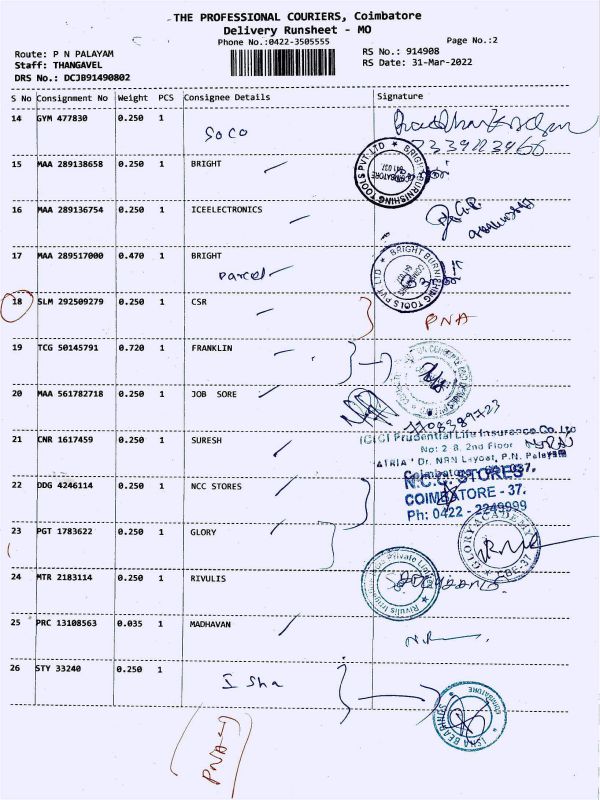 THE PROFESSIONAL COURIERS, Coimbatore
Delivery Runsheet - MO
Phone No.:0422-3505555
Page No.:2
Route: P N PALAYAM
Staff: THANGAVEL
DRS No.: DCJB91490802
RS No.: 914908
RS Date: 31-Mar-2022
S No Consignment No Weight PCS Consignee Details Signature
14 GYM 477830 0.250 1 SOCO
15 MAA 289138658 0.250 1 BRIGHT
BRIGHT BURNISHING TOOLS PVT LTD
COIMBATORE 641 037
16 MAA 289136754 0.250 1 ICEELECTRONICS
17 MAA 289517000 0.470 1 BRIGHT
parcel
BRIGHT BURNISHING TOOLS PVT LTD
18 SLM 292509279 0.250 1 CSR PNA
19 TCG 50145791 0.720 1 FRANKLIN
20 MAA 561782718 0.250 1 JOB SORE
21 CNR 1617459 0.250 1 SURESH
ICICI Prudential Life Insurance Co. Ltd
No: 2-8, 2nd Floor
"ATRIA" Dr. NRN Layout, P.N. Palayam
Coimbatore - 641 037.
22 DDG 4246114 0.250 1 NCC STORES
N.C.C. STORES
COIMBATORE - 37.
Ph: 0422 - 2249999
23 PGT 1783622 0.250 1 GLORY
GLORY ACADEMY
CBE-37
24 MTR 2183114 0.250 1 RIVULIS
Rivulis Irrigation India Private Limited
25 PRC 13108563 0.035 1 MADHAVAN
26 STY 33240 0.250 1 Isha
ISHA BEARINGS
COIMBATORE
PNA-1